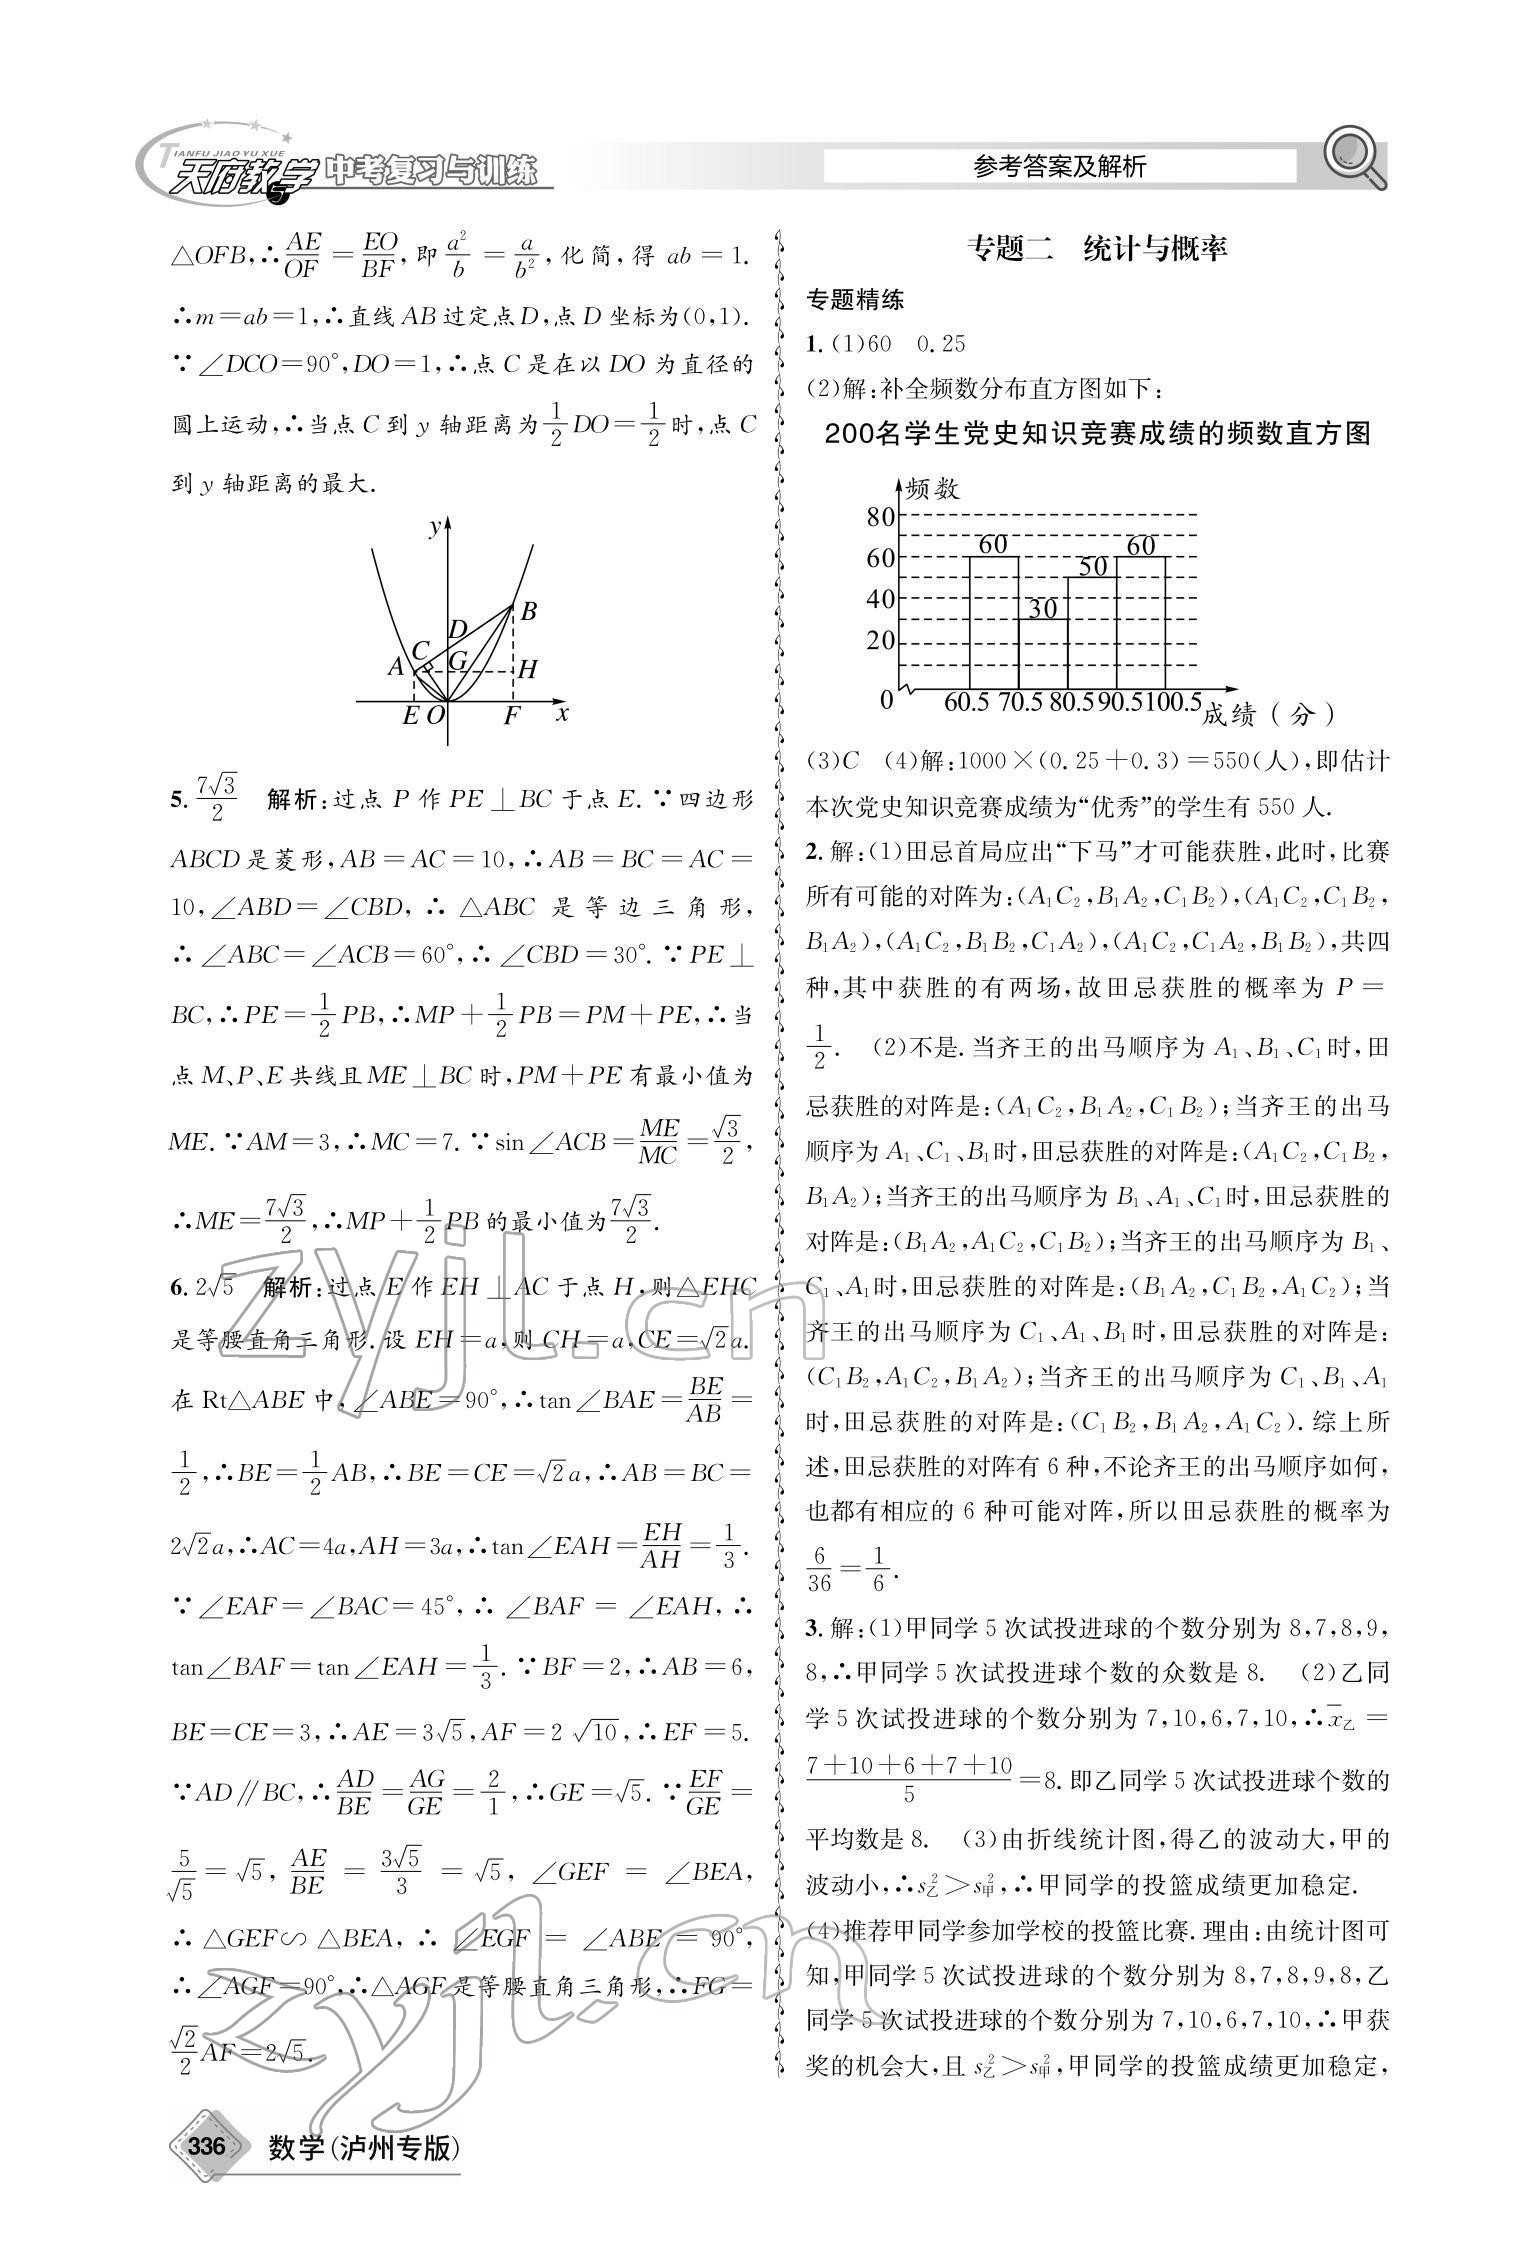 TIANFU JIAO YU XUE
天府教与学 中考复习与训练
参考答案及解析
△OFB,∴AE/OF=EO/BF,即a²/b=a/b²,化简,得 ab=1.
∴m=ab=1,∴直线AB过定点D,点D坐标为(0,1).
∵∠DCO=90°,DO=1,∴点C是在以DO为直径的
圆上运动,∴当点C到y轴距离为1/2DO=1/2时,点C
到y轴距离的最大.
y
B
D
C
A G H
E O F x
5. 7√3/2 解析:过点P作PE⊥BC于点E.∵四边形
ABCD是菱形,AB=AC=10,∴AB=BC=AC=
10,∠ABD=∠CBD,∴△ABC是等边三角形,
∴∠ABC=∠ACB=60°,∴∠CBD=30°.∵PE⊥
BC,∴PE=1/2PB,∴MP+1/2PB=PM+PE,∴当
点M、P、E共线且ME⊥BC时,PM+PE有最小值为
ME.∵AM=3,∴MC=7.∵sin∠ACB=ME/MC=√3/2,
∴ME=7√3/2,∴MP+1/2PB的最小值为7√3/2.
6. 2√5 解析:过点E作EH⊥AC于点H,则△EHC
是等腰直角三角形.设EH=a,则CH=a,CE=√2a.
在Rt△ABE中,∠ABE=90°,∴tan∠BAE=BE/AB=
1/2,∴BE=1/2AB,∴BE=CE=√2a,∴AB=BC=
2√2a,∴AC=4a,AH=3a,∴tan∠EAH=EH/AH=1/3.
∵∠EAF=∠BAC=45°,∴∠BAF=∠EAH,∴
tan∠BAF=tan∠EAH=1/3.∵BF=2,∴AB=6,
BE=CE=3,∴AE=3√5,AF=2√10,∴EF=5.
∵AD∥BC,∴AD/BE=AG/GE=2/1,∴GE=√5.∵EF/GE=
5/√5=√5,AE/BE=3√5/3=√5,∠GEF=∠BEA,
∴△GEF∽△BEA,∴∠EGF=∠ABE=90°,
∴∠AGF=90°,∴△AGF是等腰直角三角形,∴FG=
√2/2AF=2√5.
336 数学(泸州专版)
专题二 统计与概率
专题精练
1.(1)60 0.25
(2)解:补全频数分布直方图如下:
200名学生党史知识竞赛成绩的频数直方图
频数
80
60 60 60
50
40
30
20
0 60.5 70.5 80.5 90.5 100.5 成绩(分)
(3)C (4)解:1000×(0.25+0.3)=550(人),即估计
本次党史知识竞赛成绩为“优秀”的学生有550人.
2.解:(1)田忌首局应出“下马”才可能获胜,此时,比赛
所有可能的对阵为:(A₁C₂,B₁A₂,C₁B₂),(A₁C₂,C₁B₂,
B₁A₂),(A₁C₂,B₁B₂,C₁A₂),(A₁C₂,C₁A₂,B₁B₂),共四
种,其中获胜的有两场,故田忌获胜的概率为P=
1/2. (2)不是.当齐王的出马顺序为A₁、B₁、C₁时,田
忌获胜的对阵是:(A₁C₂,B₁A₂,C₁B₂);当齐王的出马
顺序为A₁、C₁、B₁时,田忌获胜的对阵是:(A₁C₂,C₁B₂,
B₁A₂);当齐王的出马顺序为B₁、A₁、C₁时,田忌获胜的
对阵是:(B₁A₂,A₁C₂,C₁B₂);当齐王的出马顺序为B₁、
C₁、A₁时,田忌获胜的对阵是:(B₁A₂,C₁B₂,A₁C₂);当
齐王的出马顺序为C₁、A₁、B₁时,田忌获胜的对阵是:
(C₁B₂,A₁C₂,B₁A₂);当齐王的出马顺序为C₁、B₁、A₁
时,田忌获胜的对阵是:(C₁B₂,B₁A₂,A₁C₂).综上所
述,田忌获胜的对阵有6种,不论齐王的出马顺序如何,
也都有相应的6种可能对阵,所以田忌获胜的概率为
6/36=1/6.
3.解:(1)甲同学5次试投进球的个数分别为8,7,8,9,
8,∴甲同学5次试投进球个数的众数是8. (2)乙同
学5次试投进球的个数分别为7,10,6,7,10,∴x̄乙=
(7+10+6+7+10)/5=8.即乙同学5次试投进球个数的
平均数是8. (3)由折线统计图,得乙的波动大,甲的
波动小,∴s²乙>s²甲,∴甲同学的投篮成绩更加稳定.
(4)推荐甲同学参加学校的投篮比赛.理由:由统计图可
知,甲同学5次试投进球的个数分别为8,7,8,9,8,乙
同学5次试投进球的个数分别为7,10,6,7,10,∴甲获
奖的机会大,且s²乙>s²甲,甲同学的投篮成绩更加稳定,
zyjl.cn
zyjl.cn